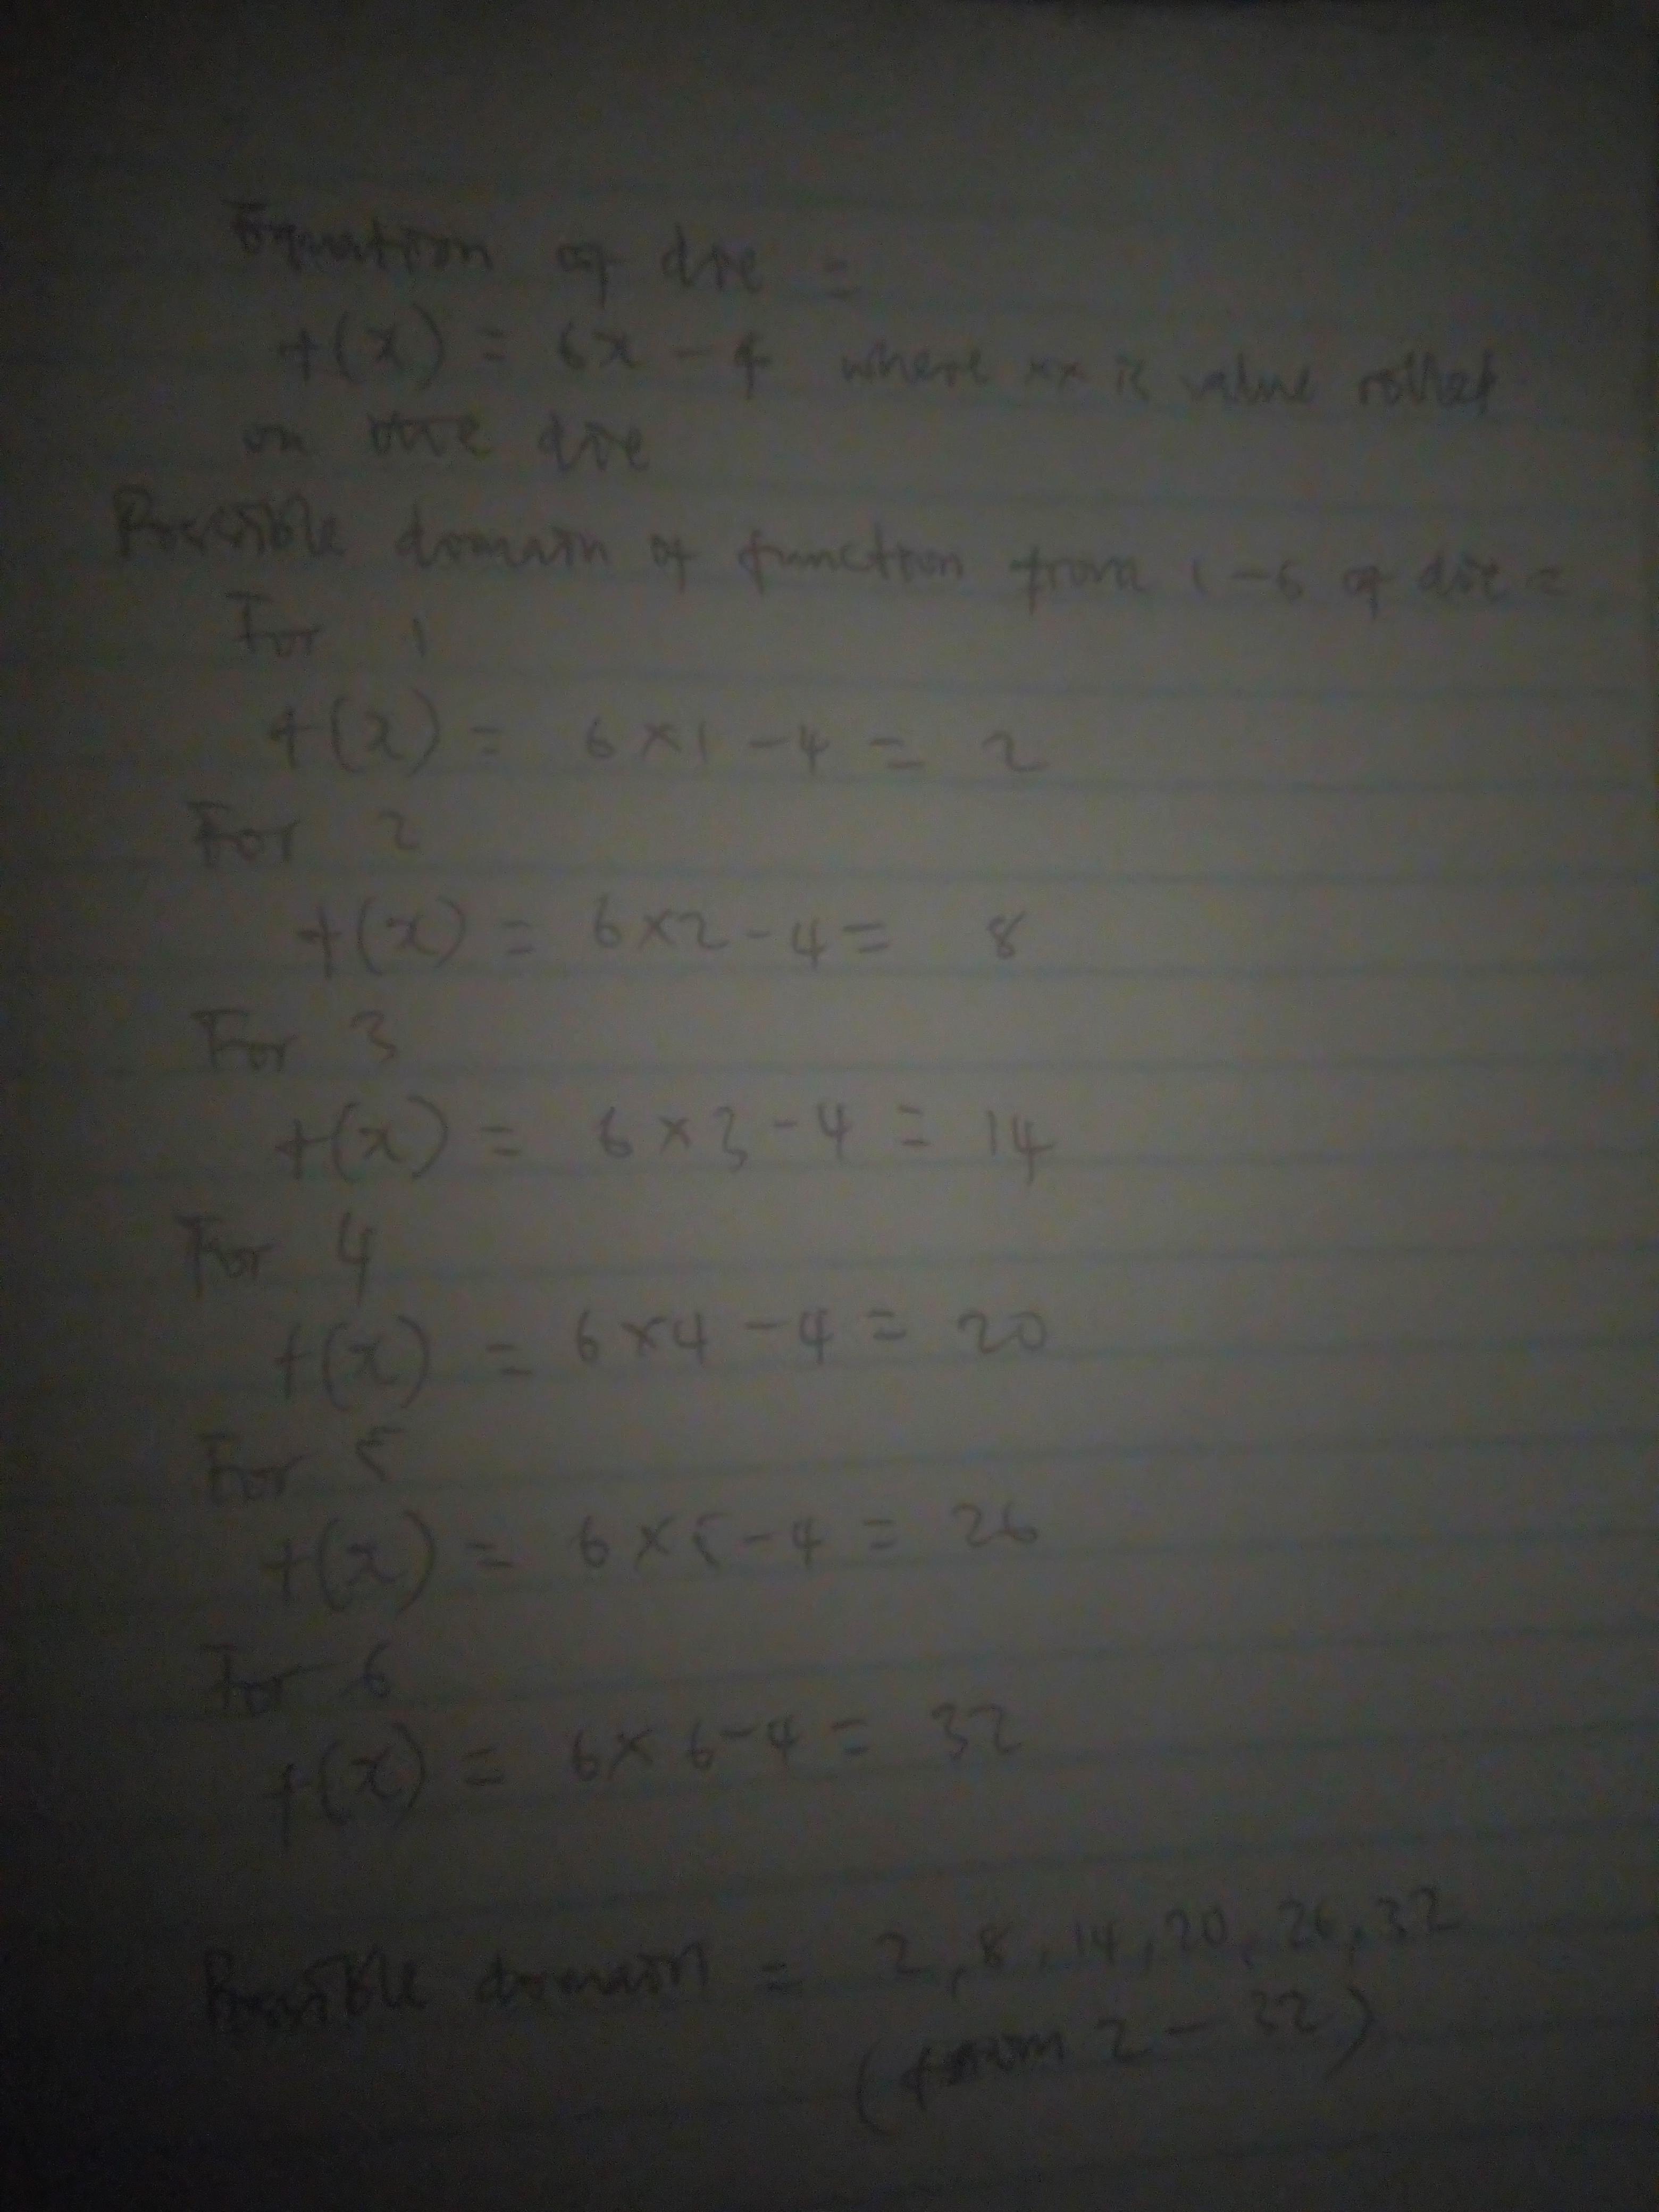 Equation of die =
f(x) = 6x - 4 where xx is value rolled
on the die
Possible domain of function from 1-6 of die =
For 1
f(x) = 6×1-4 = 2
For 2
f(x) = 6×2-4 = 8
For 3
f(x) = 6×3-4 = 14
For 4
f(x) = 6×4-4 = 20
For 5
f(x) = 6×5-4 = 26
For 6
f(x) = 6×6-4 = 32
Possible domain = 2, 8, 14, 20, 26, 32
(from 2 - 32)